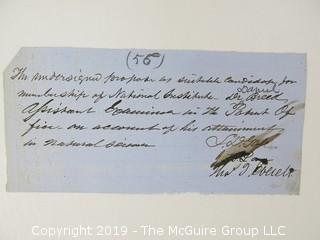 (56)
The undersigned propose as suitable candidate for
Daniel
membership of National Institute Dr Breed
Assistant Examiner in the Patent Of
fice on account of his attainment
in natural science
Thos. T. Everett
Copyright 2019 - The McGuire Group LLC